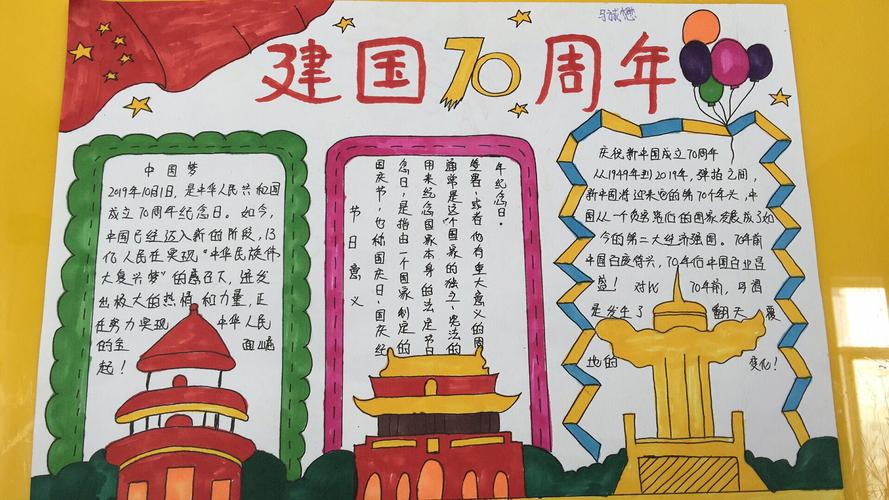 建国70周年
中国梦
2019年10月1日,是中华人民共和国
成立70周年纪念日。如今,
中国已经迈入新的阶段,13
亿人民在实现“中华民族伟
大复兴梦”的感召下,迸发
出极大的热情和力量,正
在努力实现 中华人民
的全 面崛
起!
节日意义
国庆节,也称国庆日、国庆纪
念日,是指由一个国家制定的
用来纪念国家本身的法定节日
通常是这个国家的独立、宪法的
签署、或者他有重大意义的周
年纪念日。
庆祝新中国成立70周年
从1949年到2019年,弹指之间,
新中国将迎来它的第70个年头,中
国从一个贫穷落后的国家发展成了如
今的第二大经济强国。70年前
中国百废待兴,70年后中国百业昌
盛!对比 70年前,可谓
是发生了 翻天 覆
地的 变化!